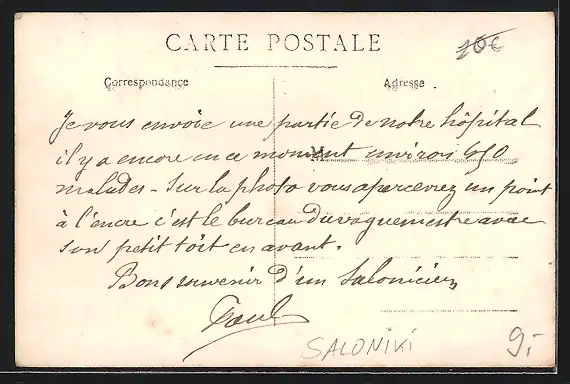 CARTE POSTALE
10€
Correspondance
Adresse
Je vous envoie une partie de notre hôpital
il y a encore en ce moment environ 650
malades - Sur la photo vous apercevrez un point
à l'encre c'est le bureau du vaguemestre avec
son petit toit en avant.
Bons souvenir d'un Salonicien
Paul
SALONIKI
9,-